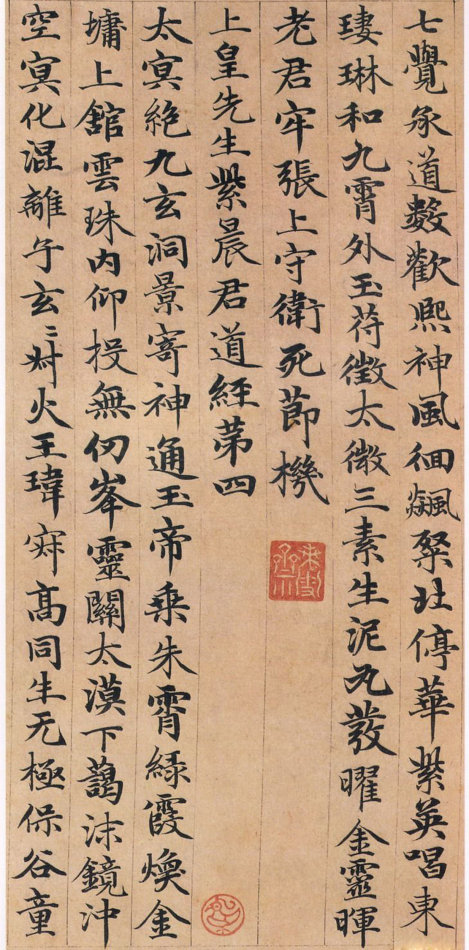 七覺承道數歡熙神風徊飆粲壯停華紫英唱東
琳和九霄外玉苻徵太微三素生泥丸發曜金靈暉
老君牢張上守衛死節機
上皇先生紫晨君道經苐四
太㝠絶九玄洞景寄神通玉帝乗朱霄緑霞煥金
墉上館雲珠内仰投無仞峯靈關太漠下藹沫鏡沖
空㝠化混離午玄〻尌火王瑋寂高同生无極保谷童